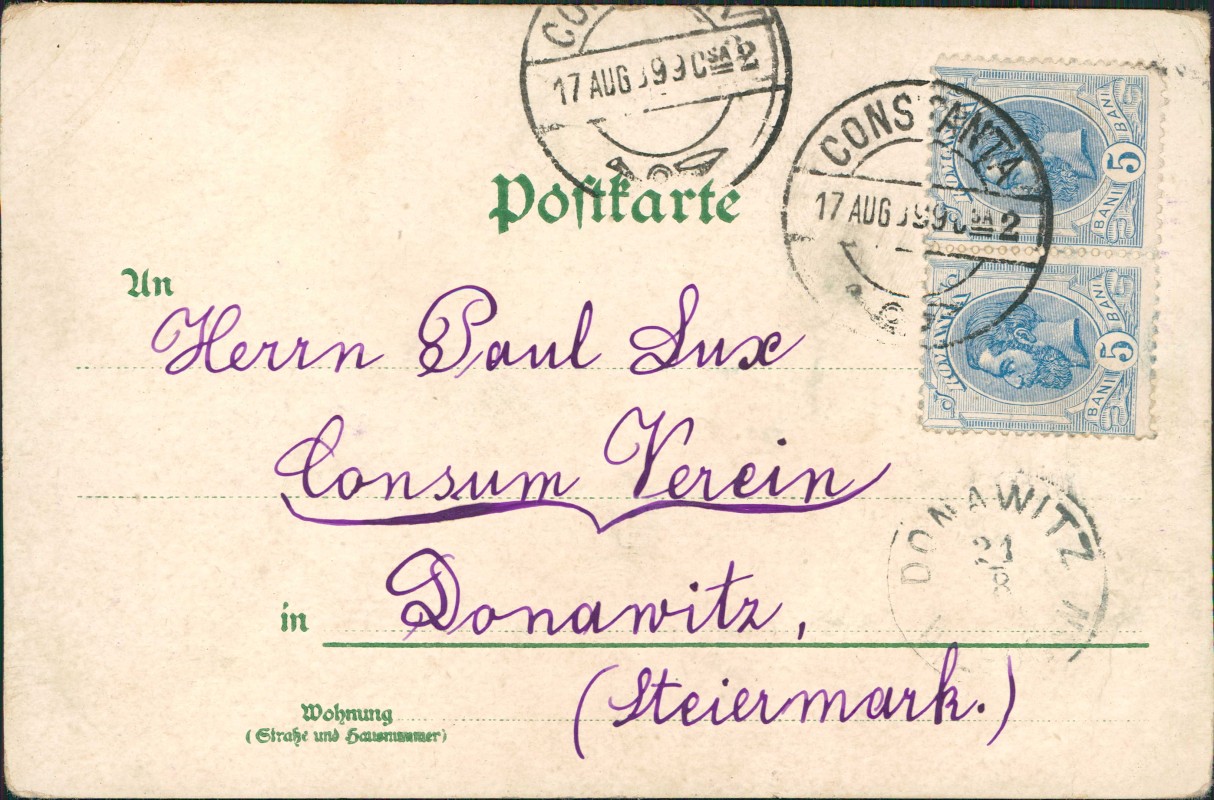 CONSTANTA
17 AUG 99 SA 2
17 AUG 99 SA 2
ROMANIA
BANI 5 BANI
ROMANIA
BANI 5 BANI
Postkarte
An
Herrn Paul Lux
Consum Verein
DONAWITZ
21
8
in Donawitz,
(Steiermark.)
Wohnung
(Straße und Hausnummer)